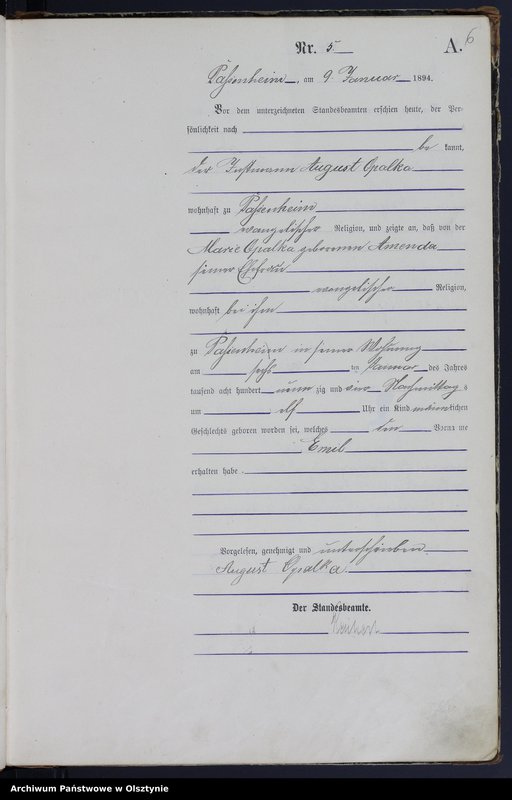 6
Nr. 5 A.
Passenheim, am 9. Januar 1894.
Vor dem unterzeichneten Standesbeamten erschien heute, der Per-
sönlichkeit nach
be kannt,
der Instmann August Opalka
wohnhaft zu Passenheim
evangelischer Religion, und zeigte an, daß von der
Marie Opalka geborenen Amenda
seiner Ehefrau
evangelischer Religion,
wohnhaft bei ihm
zu Passenheim in seiner Wohnung
am sechs ten Januar des Jahres
tausend acht hundert neun zig und vier Nachmittag s
um elf Uhr ein Kind männlichen
Geschlechts geboren worden sei, welches den Vorna me
Emil
erhalten habe.
Vorgelesen, genehmigt und unterschrieben
August Opalka.
Der Standesbeamte.
Archiwum Państwowe w Olsztynie